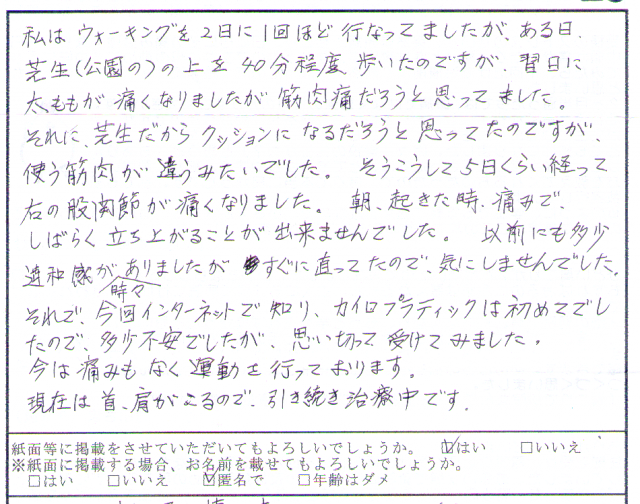 私はウォーキングを2日に1回ほど行なってましたが、ある日、
芝生(公園の)の上を40分程度歩いたのですが、翌日に
太ももが痛くなりましたが筋肉痛だろうと思ってました。
それに、芝生だからクッションになるだろうと思ってたのですが、
使う筋肉が違うみたいでした。そうこうして5日くらい経って
右の股関節が痛くなりました。朝、起きた時、痛みで、
しばらく立ち上がることが出来ませんでした。以前にも多少
違和感が時々ありましたがすぐに直ってたので、気にしませんでした。
それで、今回インターネットで知り、カイロプラティックは初めてでし
たので、多少不安でしたが、思い切って受けてみました。
今は痛みもなく運動を行っております。
現在は首、肩がこるので、引き続き治療中です。
紙面等に掲載をさせていただいてもよろしいでしょうか。 ☑はい □いいえ
※紙面に掲載する場合、お名前を載せてもよろしいでしょうか。
□はい □いいえ ☑匿名で □年齢はダメ